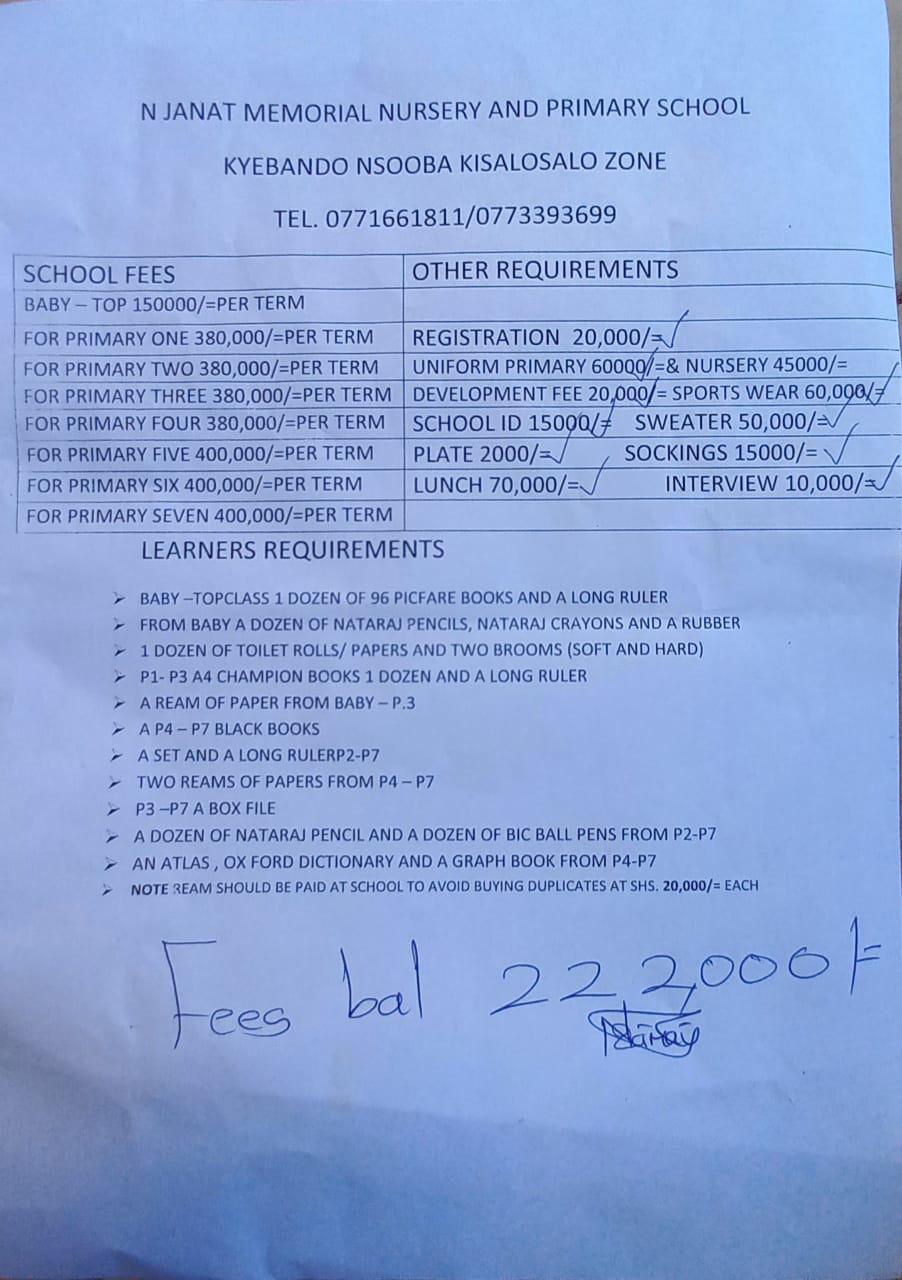 N JANAT MEMORIAL NURSERY AND PRIMARY SCHOOL
KYEBANDO NSOOBA KISALOSALO ZONE
TEL. 0771661811/0773393699
SCHOOL FEES OTHER REQUIREMENTS
BABY – TOP 150000/=PER TERM
FOR PRIMARY ONE 380,000/=PER TERM REGISTRATION 20,000/=
FOR PRIMARY TWO 380,000/=PER TERM UNIFORM PRIMARY 60000/=& NURSERY 45000/=
FOR PRIMARY THREE 380,000/=PER TERM DEVELOPMENT FEE 20,000/= SPORTS WEAR 60,000/=
FOR PRIMARY FOUR 380,000/=PER TERM SCHOOL ID 15000/= SWEATER 50,000/=
FOR PRIMARY FIVE 400,000/=PER TERM PLATE 2000/= SOCKINGS 15000/=
FOR PRIMARY SIX 400,000/=PER TERM LUNCH 70,000/= INTERVIEW 10,000/=
FOR PRIMARY SEVEN 400,000/=PER TERM
LEARNERS REQUIREMENTS
BABY –TOPCLASS 1 DOZEN OF 96 PICFARE BOOKS AND A LONG RULER
FROM BABY A DOZEN OF NATARAJ PENCILS, NATARAJ CRAYONS AND A RUBBER
1 DOZEN OF TOILET ROLLS/ PAPERS AND TWO BROOMS (SOFT AND HARD)
P1- P3 A4 CHAMPION BOOKS 1 DOZEN AND A LONG RULER
A REAM OF PAPER FROM BABY – P.3
A P4 – P7 BLACK BOOKS
A SET AND A LONG RULERP2-P7
TWO REAMS OF PAPERS FROM P4 – P7
P3 –P7 A BOX FILE
A DOZEN OF NATARAJ PENCIL AND A DOZEN OF BIC BALL PENS FROM P2-P7
AN ATLAS , OX FORD DICTIONARY AND A GRAPH BOOK FROM P4-P7
NOTE REAM SHOULD BE PAID AT SCHOOL TO AVOID BUYING DUPLICATES AT SHS. 20,000/= EACH
Fees bal 222,000/=